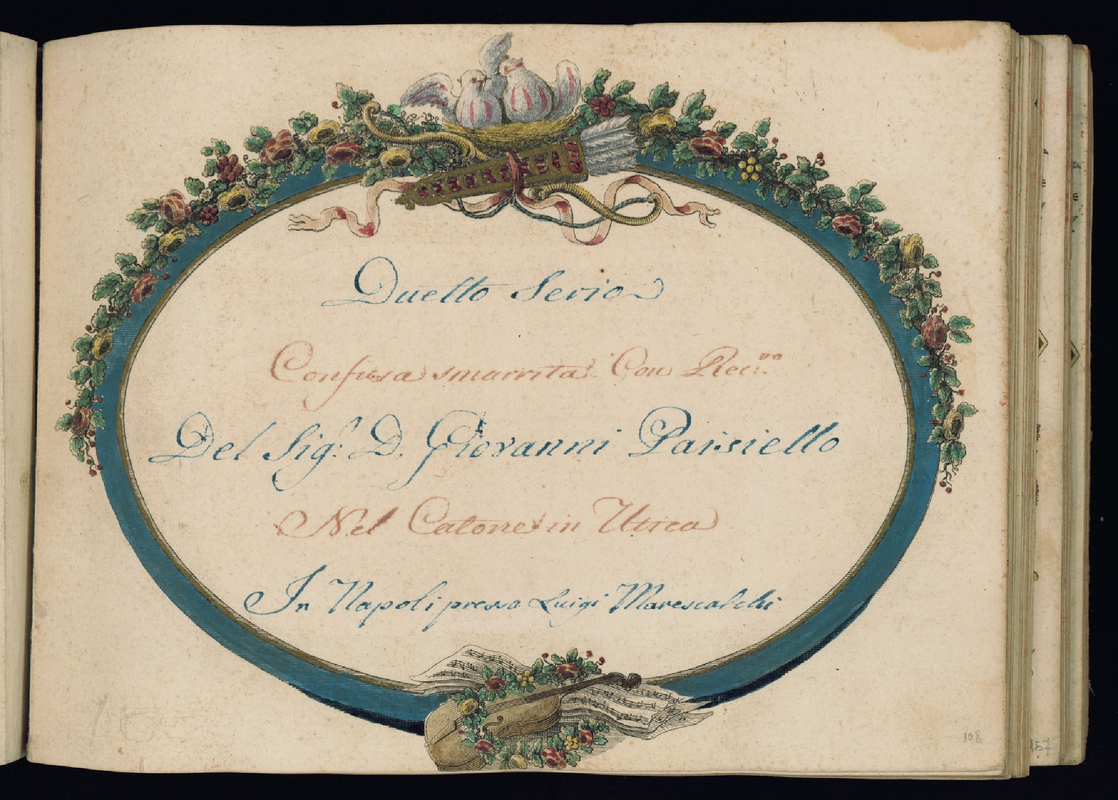 Duetto Serio
Confusa smarrita Con Rec.vo
Del Sig.r D. Giovanni Paisiello
Nel Catone in Utica
In Napoli presso Luigi Marescalchi
108
157